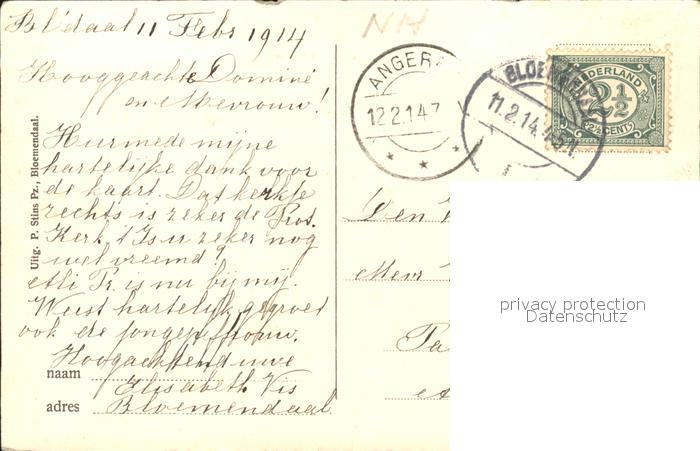 Bl'daal 11 Febr 1914
NH
Hooggeachte Dominé
en Mevrouw!
Hiermede mijne
hartelijke dank voor
de kaart. Dat kerkje
rechts is zeker de Prot.
Kerk. 't Is u zeker nog
wel vreemd?
is nu bij mij.
Weest hartelijk gegroet
ook de jongejuffrouw.
Hoogachtend uwe
naam Elisabeth Vis
adres Bloemendaal
Uitg. P. Stins Pz., Bloemendaal.
ANGER
12.2.14.7
BLOEMENDAAL
11.2.14.
NEDERLAND
2½
(2½ CENT)
Den
Mevr
Pa
privacy protection
Datenschutz